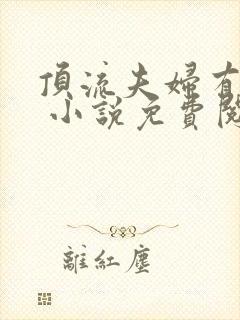 頂流夫婦有
小說免費閱
離紅塵